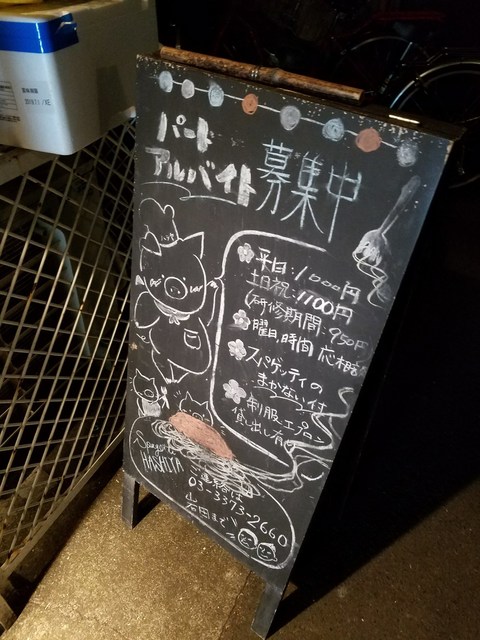 パート
アルバイト
募集中
平日:1000円
土日祝:1100円
(研修期間:950円
曜日、時間 応相談
スパゲッティの
まかない付
制服エプロン
貸し出し有
Spagetti
HASHIYA
ご連絡は
03-3373-2660
石田まで